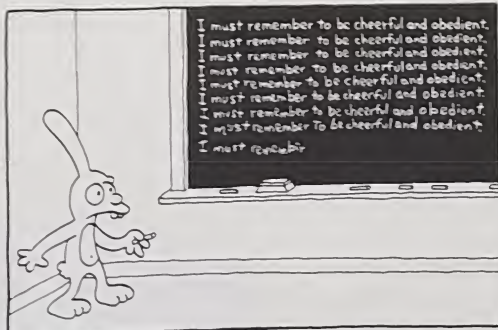 I must remember to be cheerful and obedient.
I must remember to be cheerful and obedient.
I must remember to be cheerful and obedient.
I must remember to be cheerful and obedient.
I must remember to be cheerful and obedient.
I must remember to be cheerful and obedient.
I must remember to be cheerful and obedient.
I must remember To be cheerful and obedient.
I must remembir